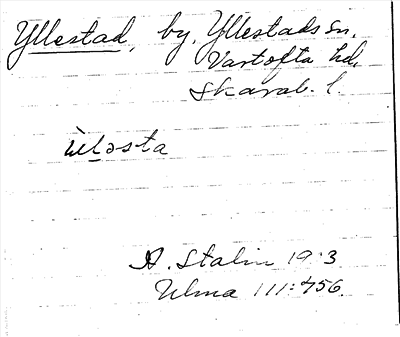 Yllestad, by. Yllestads sn.
Vartofta hd.
Skarab. l.
ùl̀ǝsta
A. Stalin 19 3
Ulma 111:456.